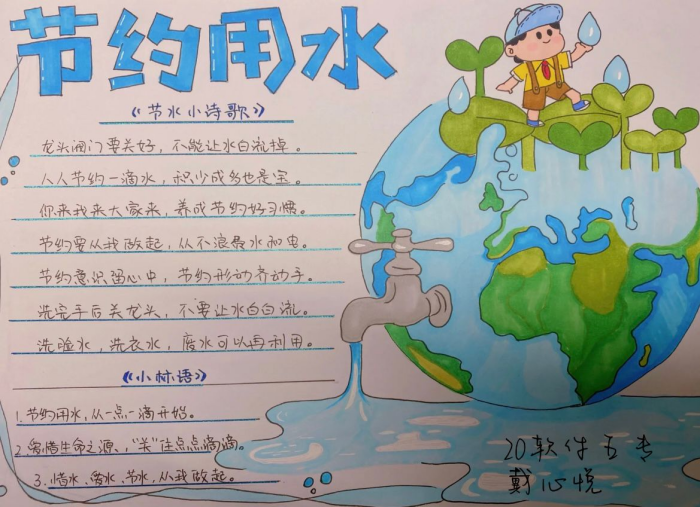 节约用水
《节水小诗歌》
龙头阀门要关好，不能让水白流掉。
人人节约一滴水，积少成多也是宝。
你来我来大家来，养成节约好习惯。
节约要从我做起，从不浪费水和电。
节约意识留心中，节约形动齐动手。
洗完手后关龙头，不要让水白白流。
洗脸水，洗衣水，废水可以再利用。
《小标语》
1.节约用水，从一点一滴开始。
2.爱惜生命之源、，“关”住点点滴滴。
3.惜水、爱水、节水，从我做起。
20软件五专
戴心悦